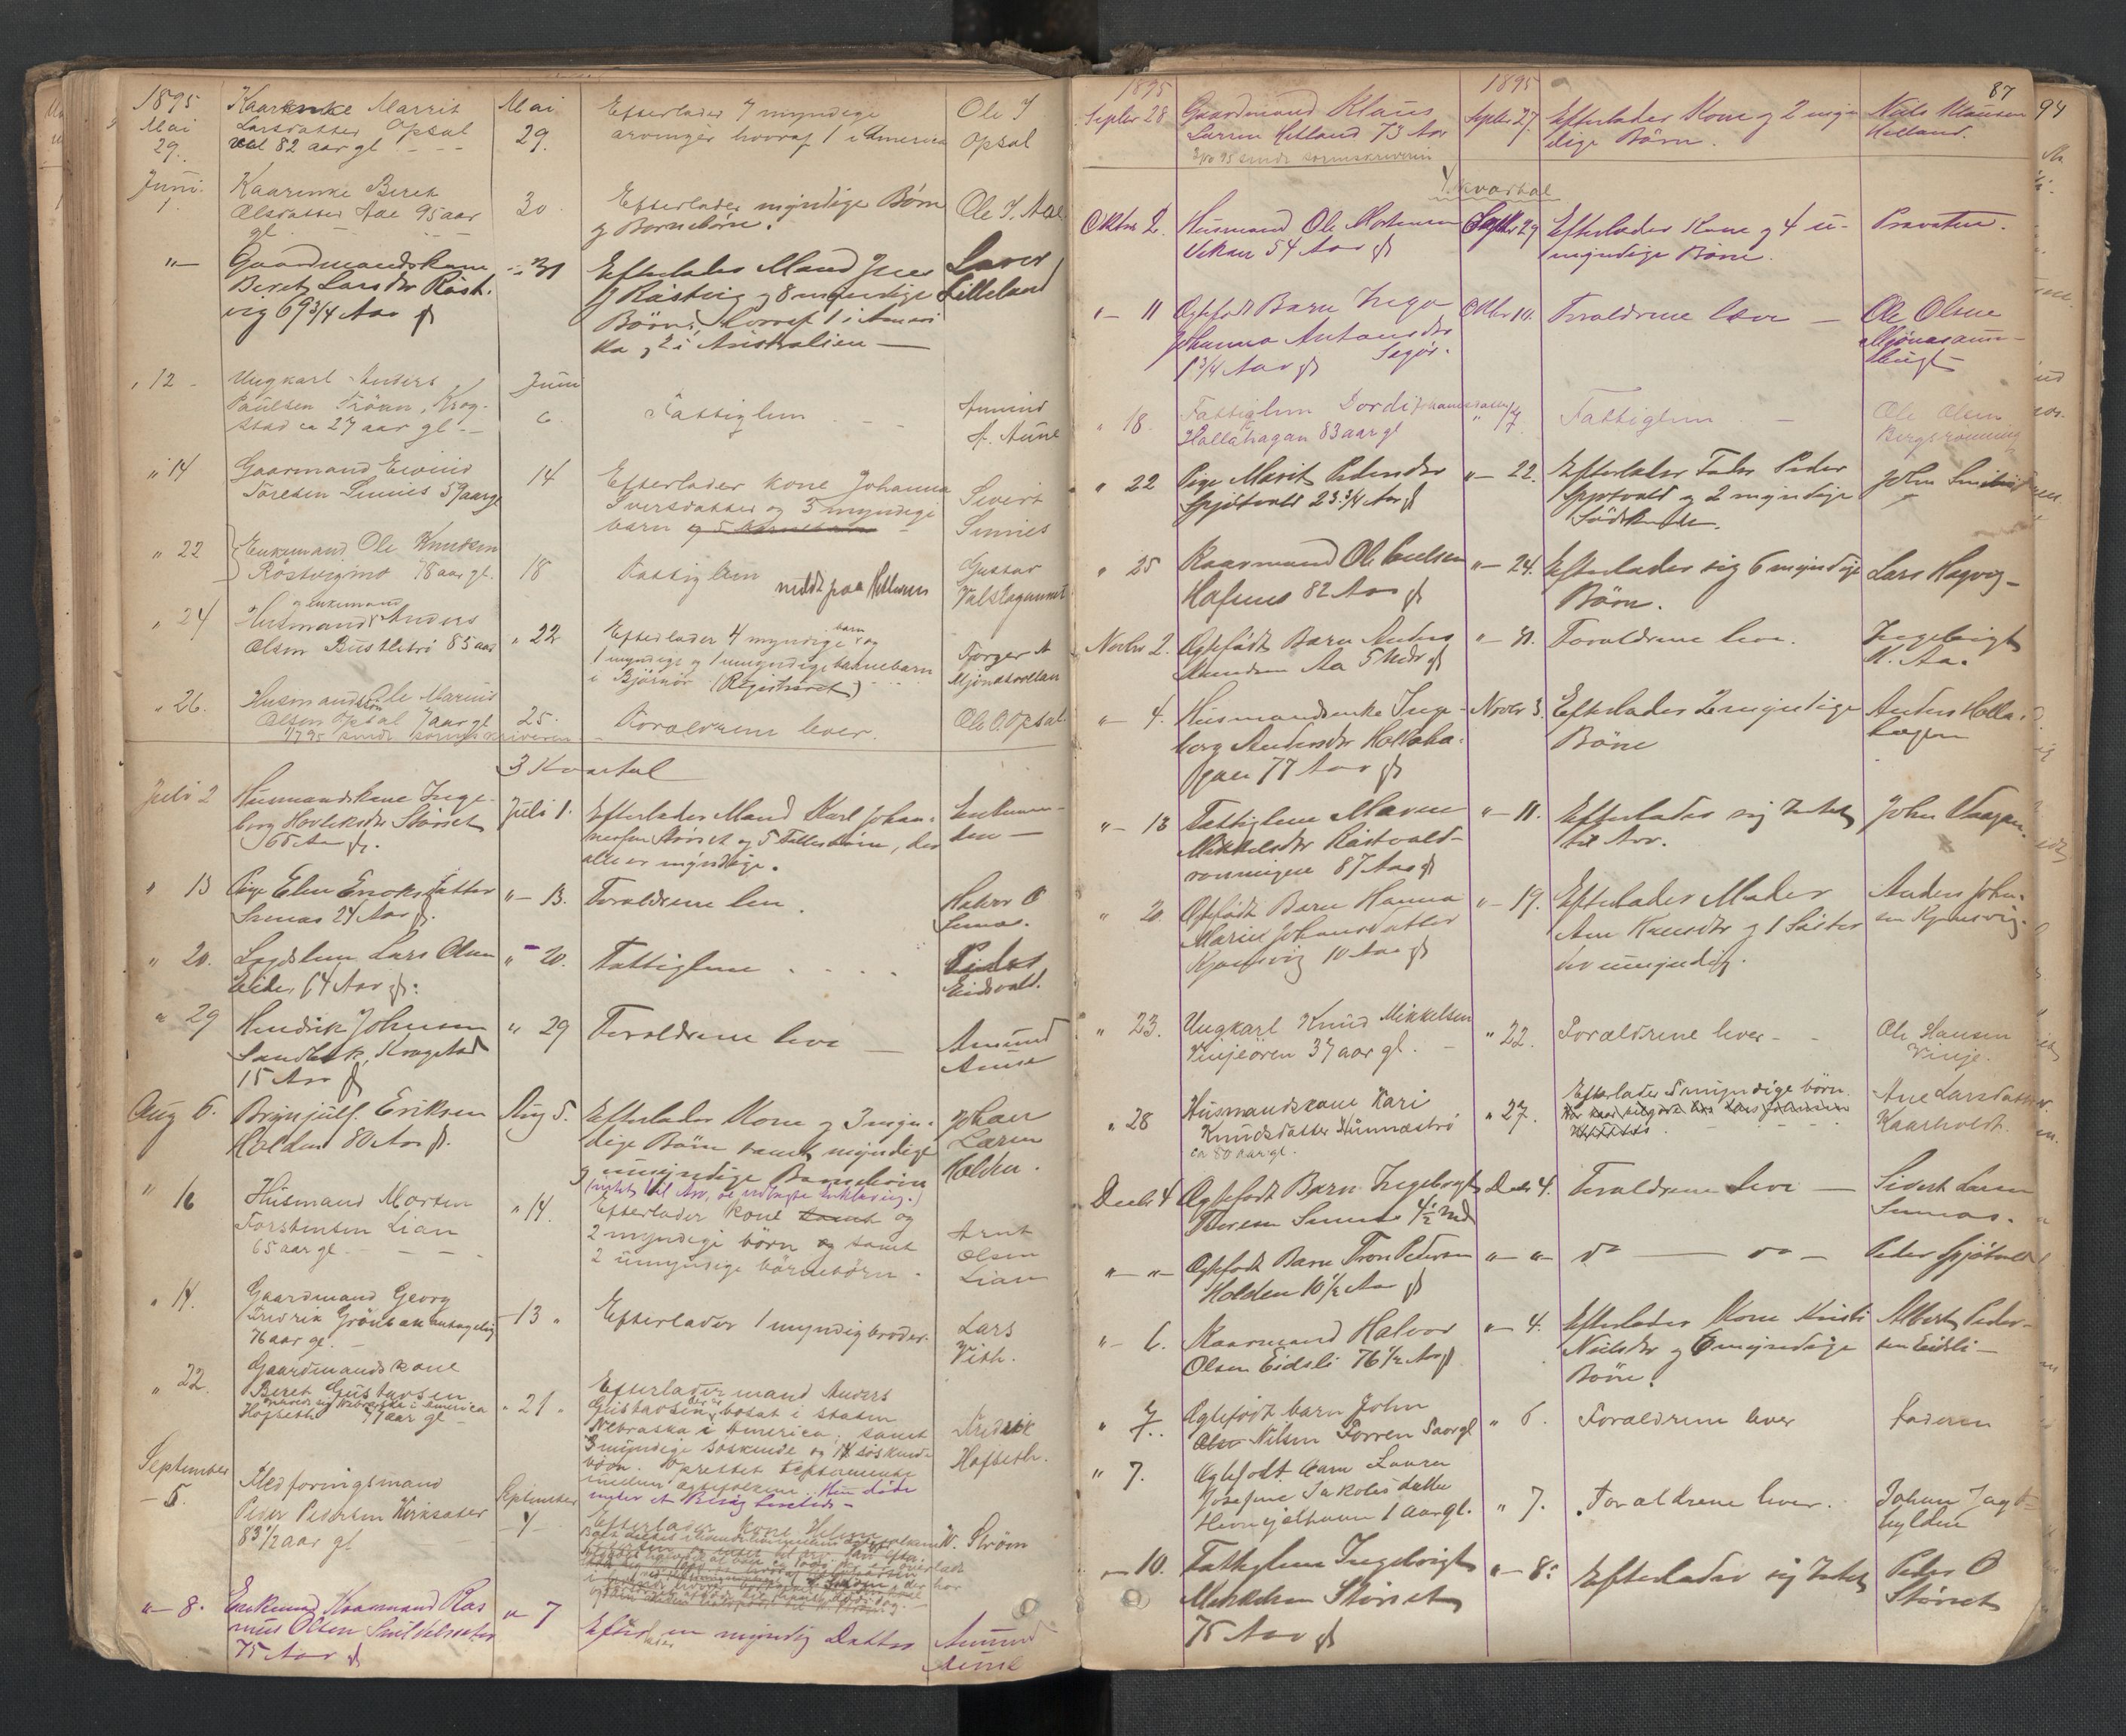 1895
Mai
29.
Kaarenke Marrit
Larsdatter Opsal
vel 82 aar gl
Mai
29.
Efterlader 7 myndige
arvinger hvoraf 1 i America
Ole J
Opsal
Juni
1.
Kaarenke Beret
Olsdatter Aae 95 aar
gl
30
Efterlader myndige Børn
og Børnebørn.
Ole J. Aae
"
Gaardmandskone
Beret Larsdtr Røst-
vig 69 3/4 Aar gl
31
Efterlader Mand Iver
J Røstvig og 8 myndige
Børn, hvoraf 1 i Ameri
ka og 2 i Australien
Laver
Lilleland
" 12
Ungkarl Anders
Paulsen Trøan, Krog-
stad ca 27 aar gl
Juni
6
Fattiglem
Amund
A. Aune
" 14
Gaarmand Eivind
Toresen Sinnes 59 aar gl
14
Efterlader kone Johanna
Iversdatter og 3 myndige
barn og 5 barnebarn
Sivert
Sinnes
" 22
Enkemand Ole Knudsen
Røstvigmo 78 aar gl.
18
Fattiglem
meldt paa Hellmen
Gustav
" 24
og enkemand
Husmand Anders
Olsen Busliebrø 85 aar
" 22
Efterlader 4 myndige barn og
1 myndige og 1 umyndige barnebarn
i Bjørnør (Registreret)
Torger A
" 26.
Husmandssøn Ole Marius
Olsen Opsal 7 aar gl
1/7 95 sendt sorenskriveren
25.
Foraldrene lever.
Ole O. Opsal
3 Kvartal
Juli 2
Husmandskone Inge-
borg Hovleksdtr Størset
65 Aar gl.
Juli 1.
Efterlader Mand Karl Johan-
nessen Størset og 5 Fællesbørn, der
alle er myndige.
Enkeman-
den —
" 13
Pige Elen Eriksdatter
Semas 24 Aar gl.
" 13.
Foraldrene leve.
Halvor O
" 20.
Lægdslem Lars Olsen
Eide, 64 Aar gl.
" 20.
Fattiglem
Eidsvold.
" 29
Hendrik Johnsen
Sandbak, Krogstad
15 Aar gl
" 29
Foraldrene leve
Amund
Aune
Aug 6.
Brynjulf Eriksen
Holden 80 Aar gl.
Aug 5.
Efterlader Kone og 3 myn-
dige Børn samt myndige
og umyndige Barnebørn
(intet til Arv, se indlagte Erklæring.)
Johan
Larsen
Holden.
" 16
Husmand Morten
Torstensen Lian
65 aar gl.
" 14.
Efterlader kone samt og
2 myndige børn og samt
2 umyndige børnebørn
Arnt
Olsen
Lian
" 14.
Gaardmand Georg
Fredrik Grønbak
76 aar gl.
13 "
Efterlader 1 myndig broder.
Lars
Vith.
" 22.
Gaardmandskone
Beret Gustavsen
opholdt sig Nebraska i America
Hofseth 77 aar gl
" 21 "
Efterlader mand Anders
Gustavsen, der er bosat i staten
Nebraska i America, samt
3 myndige søskende og 14 søskende
børn. Oprettet testamente
imellem ægtefolkene. Hun døde
under et Besøg herstede —
Fredrik
Hofseth.
September
5.
Medforingsmand
Peder Pedersen Kirksæter
83 1/2 aar gl
September
4
Efterlader kone Helene
W. Strøm
" 8.
Enkemand, Kaarmand Ras
mus Olsen Snildelsæter
75 Aar gl
" 7
Efterlader en myndig Datter
Amund
Aune
87
94
1895
Septbr 28
Gaardmand Klaus
Larsen Helland 73 Aar
3/10 95 sendt sorenskriveren
1895
Septbr 27.
Efterlader Kone og 2 myn
dige Børn.
Nils Klausen
Helland.
4. kvartal
Oktbr 2.
Husmand Ole Mortensen
Vikan 54 Aar gl
Septbr 29
Efterlader Kone og 4 u-
myndige Børn.
Presten.
" 11
Ægtefødt Barn Inga
Johanna Antonsdtr
1 3/4 Aar gl
Oktbr 10.
Foraldrene leve —
Ole Olsen
" 18.
Fattiglem Dordi Johannesdatter
Hollahagan 83 aar gl
" 17.
Fattiglem
Ole Olsen
Bergsrønning
" 22
Pige Marit Pedersdtr
Spjøtvold 23 3/4 Aar gl
" 22.
Efterlader Fader Peder
Spjøtvold og 2 myndige
Sødskende.
John
" 25
Kaarmand Ole Eielsen
Hafsnes 82 Aar gl
" 24.
Efterlader sig 6 myndige
Børn.
Lars Hagvig
Novbr 2.
Ægtefødt Barn Anders
Amundsen Aa 5 Mdr gl
" 31.
Foraldrene leve.
Ingebrigt
K. Aa.
" 4.
Husmandsenke Inge-
borg Andersdtr Hollaha-
gan 77 Aar gl
Novbr 3.
Efterlader 2 myndige
Børn
Anders Holla-
hagen
" 13
Fattiglem Maren
Mikkelsdtr Røstvold-
rønningen 87 Aar gl
" 11.
Efterlader sig Intet
til Arv.
John Vaagan.
" 20
Ægtefødt Barn Hanna
Marie Johansdatter
Kjønsvig 10 Aar gl
" 19.
Efterlader Moder
Ane Knudsdtr og 1 Søster
der umyndig.
Anders John-
sen Kjønsvig.
" 23.
Ungkarl Knud Mikkelsen
Vinjeøren 37 aar gl.
" 22.
Forældrene lever
Ole Hansen
Vinje.
" 28
Husmandskone Kari
Knudsdatter
ca 80 aar gl.
" 27.
Efterlader 5 myndige børn.
Ane Larsdatter
Kaarholdt.
Decbr 4
Ægtefødt Barn Ingebrigt
Thoresen Sinnes 4 1/2 Md
Decbr 4.
Foraldrene leve —
Sivert Larsen
" "
Ægtefødt Barn Tron Petersen
Holden 10 1/2 Aar gl
" "
do — do —
Peder Spjøtvold
" 6.
Kaarmand Halvor
Olsen Eidsli 76 1/2 Aar gl
" 4.
Efterlader Kone Kristi
Nielsdtr og 6 myndige
Børn.
Albert Peder-
sen Eidsli —
" 7.
Ægtefødt barn John
Olsen Nilsen Torren 5 aar gl
" 6.
Foraldrene lever
Faderen
" 7.
Ægtefødt barn Laura
Josefine Jakobsdatter
1 aar gl.
" 7.
Foraldrene lever.
Johan Jagt-
hylden
" 10.
Fattiglem Ingebrigt
Mikkelsen Størset
75 Aar gl
" 8.
Efterlader sig Intet
Peder O
Størset